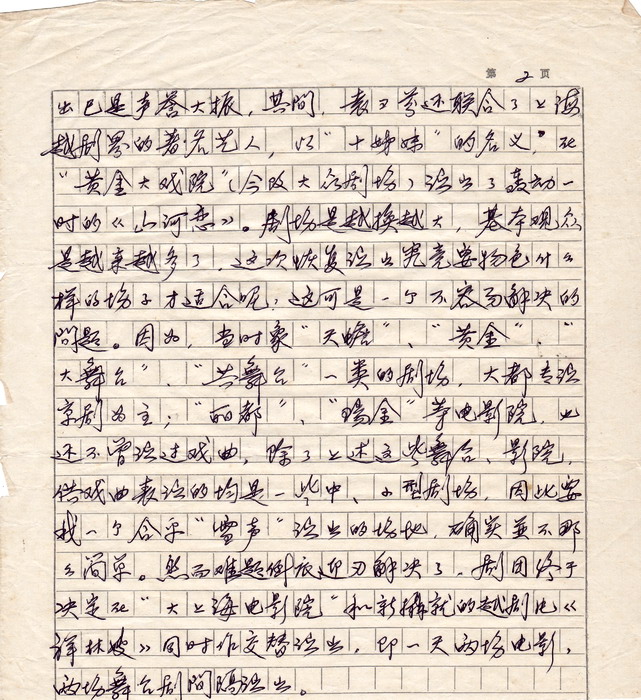 第 2 页
出已是声誉大振，其间，袁雪芬还联合了上海
越剧界的著名艺人，以“十姊妹”的名义，在
“黄金大戏院”（今改大众剧场）演出了轰动一
时的《山河恋》。剧场是越换越大，基本观众
是越来越多了，这次恢复演出究竟要物色什么
样的场子才适合呢？这可是一个不容易解决的
问题。因为，当时象“天蟾”、“黄金”、“
大舞台”、“共舞台”一类的剧场，大都专演
京剧为主；“丽都”、“瑞金”等电影院，也
还不曾演过戏曲，除了上述这些舞台、影院，
供戏曲表演的均是一些中、小型剧场，因此要
找一个合乎“雪声”演出的场地，确实並不那
么简单。然而难题倒底迎刃解决了，剧团终于
决定在“大上海电影院”和新摄就的越剧片《
祥林嫂》同时作交替演出，即一天两场电影，
两场舞台剧间隔演出。